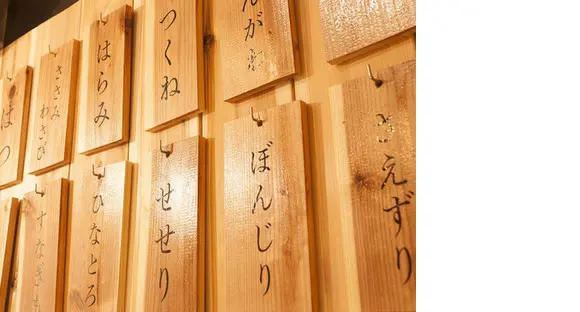 つくね
はらみ
ささみ
わさび
はつ
さえずり
ぼんじり
せせり
ひなとろ
すなぎも